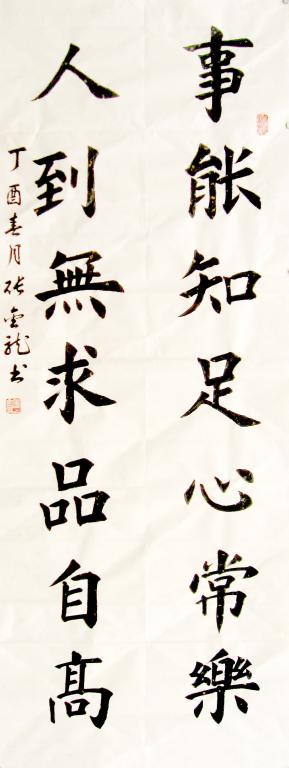 事能知足心常樂
人到無求品自高
丁酉春月張金龍书